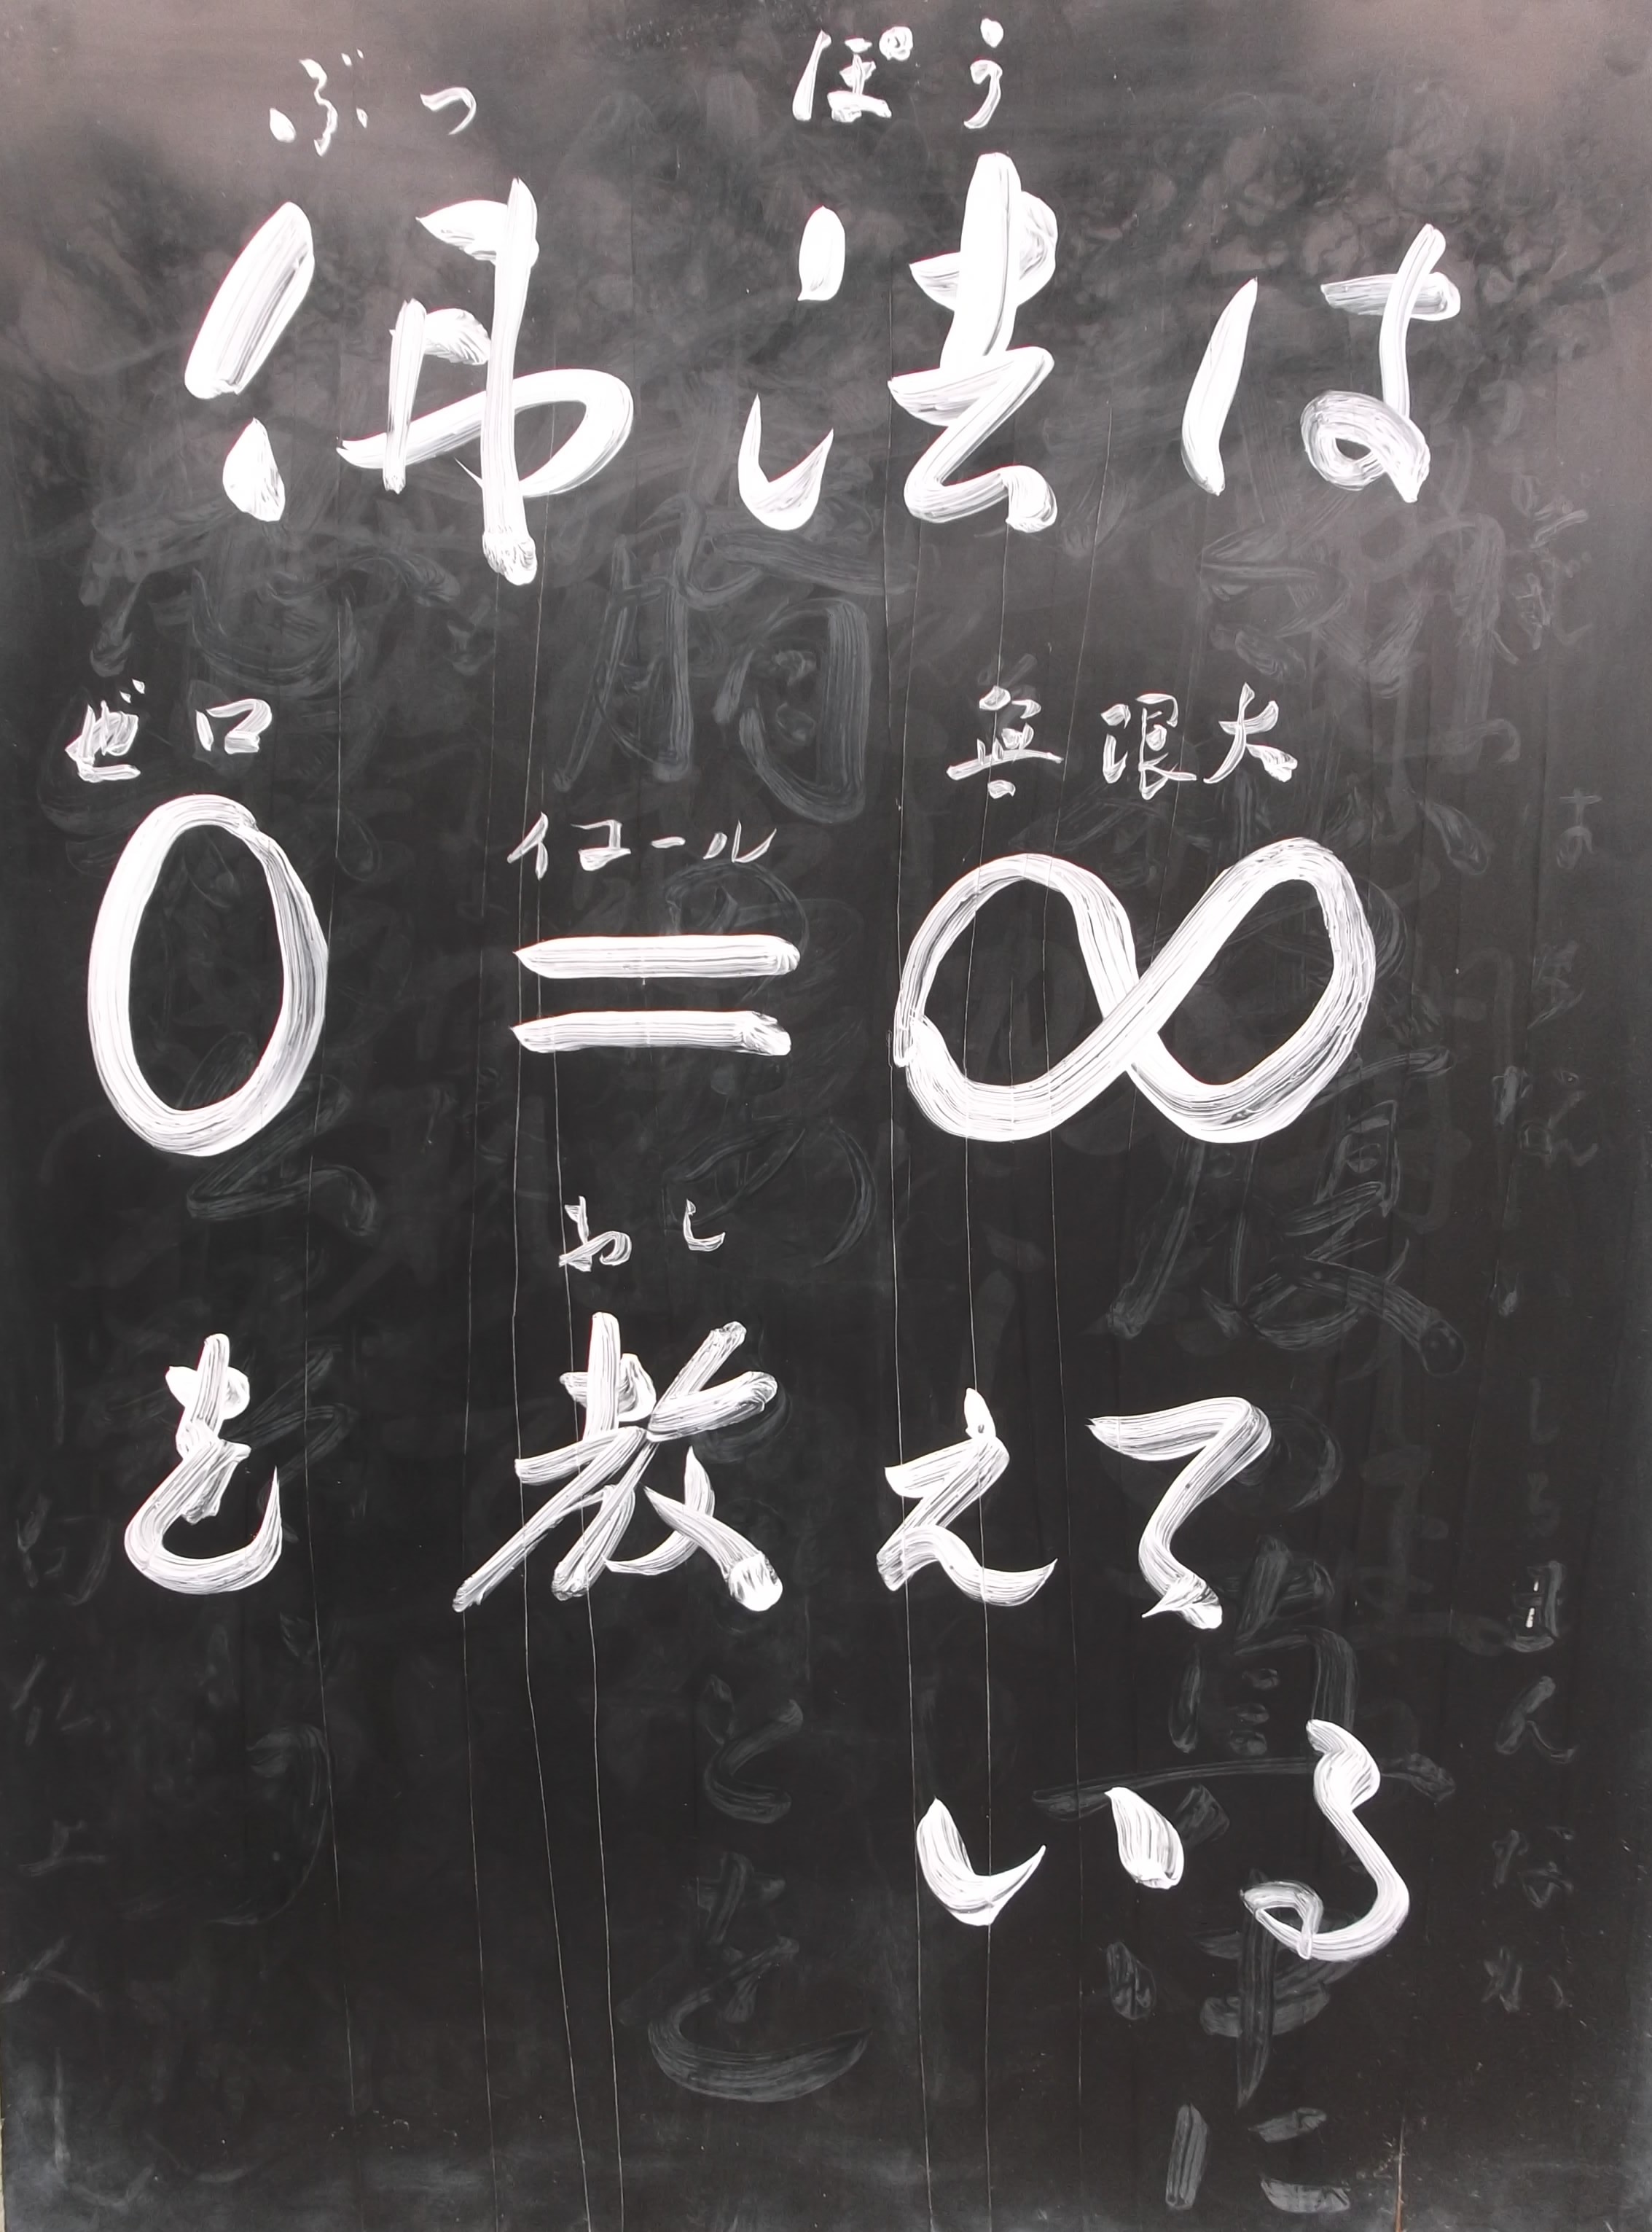 ぶっ ぽう
佛法は
ゼロ 無限大
イコール
0=∞
おし
を教えて
いる